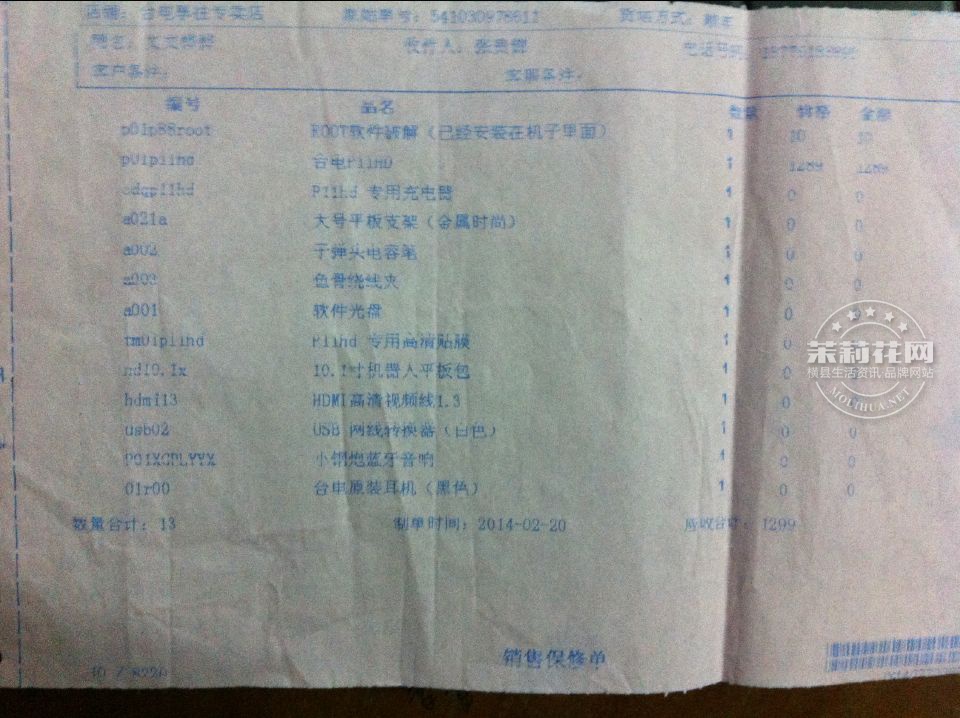 店铺：台电 专卖店 原始单号：541030978612 货运方式：
收件人：张 电话号
客户备注： 客服备注：
编号 品名 数量 价格 金额
p01p88root ROOT软件破解（已经安装在机子里面） 1 10 10
p01p11hd 台电P11HD 1 1289 1289
cdqp11hd P11hd 专用充电器 1 0 0
a021a 大号平板支架（金属时尚） 1 0 0
a002 子弹头电容笔 1 0 0
a003 鱼骨绕线夹 1 0 0
a001 软件光盘 1 0 0
tm01p11hd P11hd 专用高清贴膜 1 0 0
nd10.1x 10.1寸机器人平板包 1 0 0
hdmi13 HDMI高清视频线1.3 1 0 0
usb02 USB 网线转换器（白色） 1 0 0
小钢炮蓝牙音响 1 0 0
01r00 台电原装耳机（黑色） 1 0 0
数量合计：13 制单时间：2014-02-20 应收合计：1299
销售保修单
10 / 8220
茉莉花网
横县生活资讯 品牌网站
MOLIHUA.NET